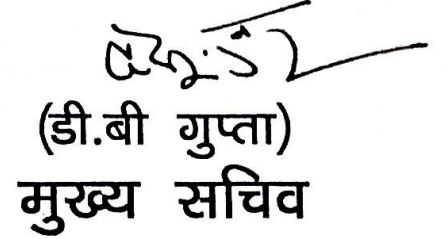 (डी.बी गुप्ता)
मुख्य सचिव